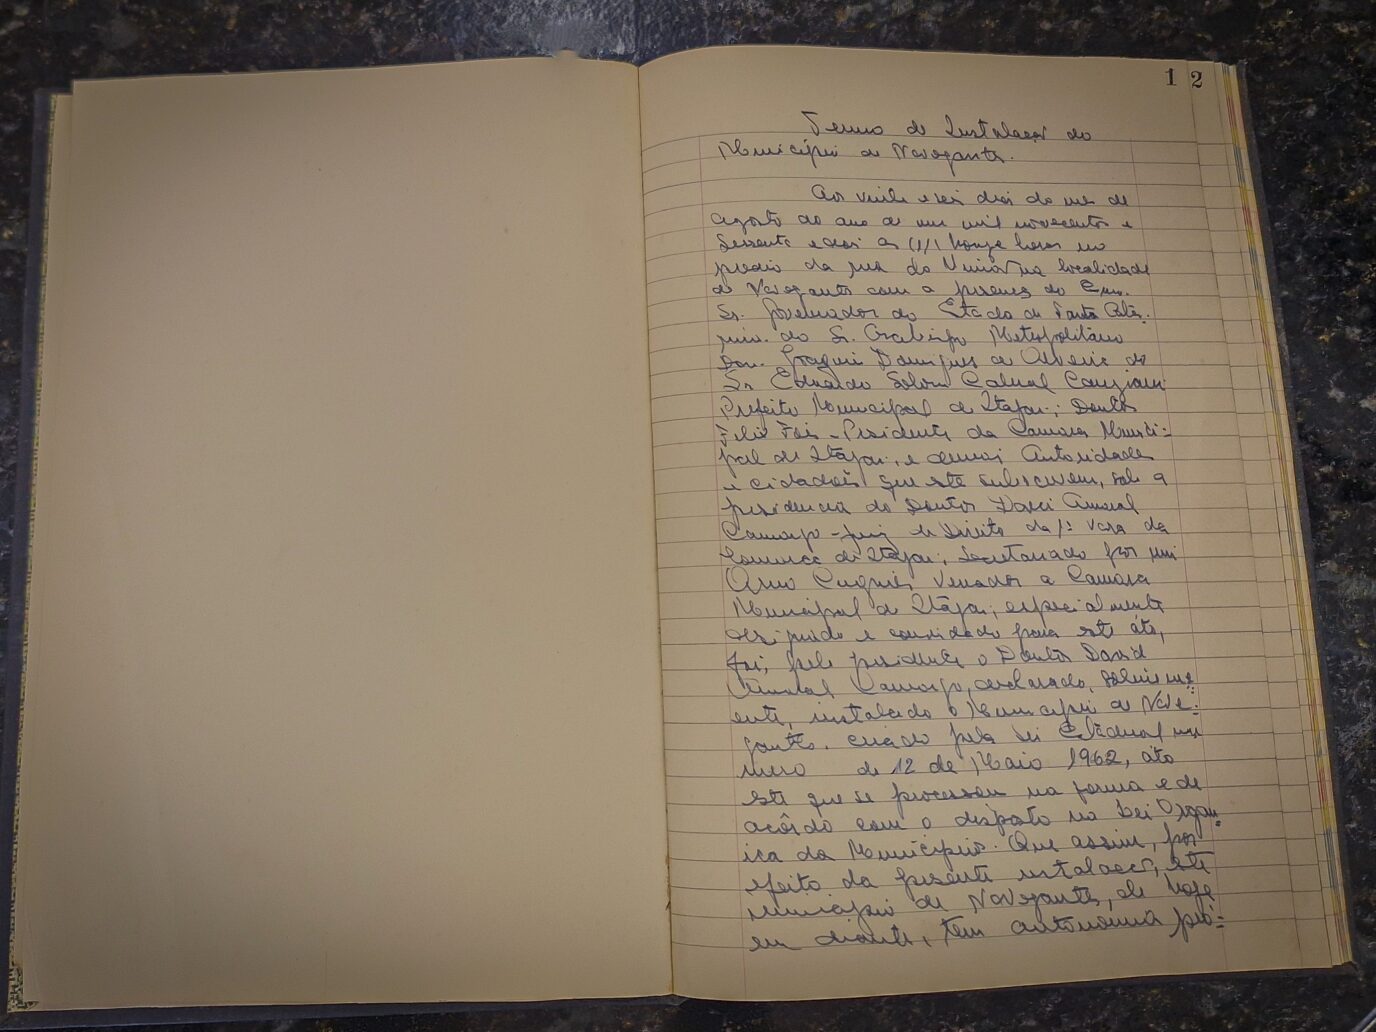 1 2
Termo de Instalação do
Município de Navegantes.
Aos vinte e seis dias do mes de
agosto do ano de um mil novecentos e
sessenta e dois as (11) honze horas no
predio da rua do na localidade
de Navegantes com a presença do Exmo.
Sr. Governador do Estado de Santa Cata-
rina. do Sr. Arcebispo Metropolitano
Dom. Joaquim Domingues de Oliveira do
Sr Eduardo Solon Cabral Canziani
Prefeito Municipal de Itajai; Doutor
Felix Fóes - Presidente da Camara Munici-
pal de Itajai, e demais Autoridades
e cidadãos que este subscrevem, sob a
presidencia do Doutor Amaral
Camargo - juiz de Direito da 1ª Vara da
Comarca de Itajai, Secretariado por mim
Arno Vereador a Camara
Municipal de Itajai, especialmente
designado e convidado para este áto,
foi, pelo presidente o Doutor David
Amaral Camargo, declarado, solenem-
ente, instalado o Municipio de Nave-
gantes. criado pela Lei Estadual nu
mero de 12 de Maio 1962, ato
este que se processou na forma e de
acôrdo com o disposto na Lei Organ-
ica dos Municipios. Que assim, por
efeito da presente instalação, este
municipio de Navegantes, de hoje
em diante, tem autonomia pró-